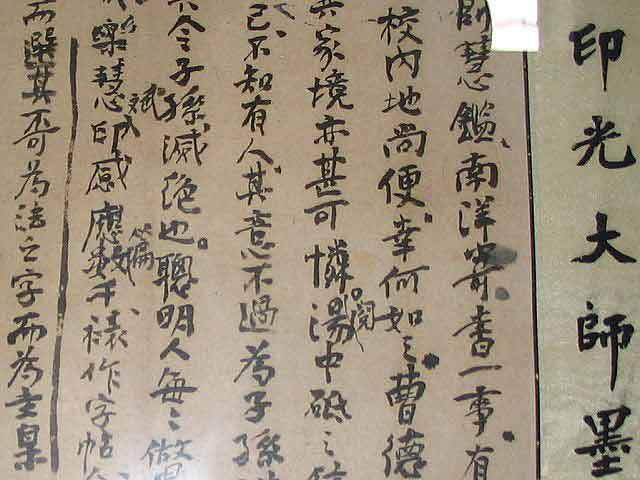 印光大師墨
師慧鑑南洋寄書一事有
校內地尚便幸何如之曹德
其家境亦甚可憐湯中砥之
己不知有人其意不過為子孫
令子孫滅絕也聰明人每々做
樂慧斌印感應篇數千樣作字帖
而選其可為法之字而為主臬
閱